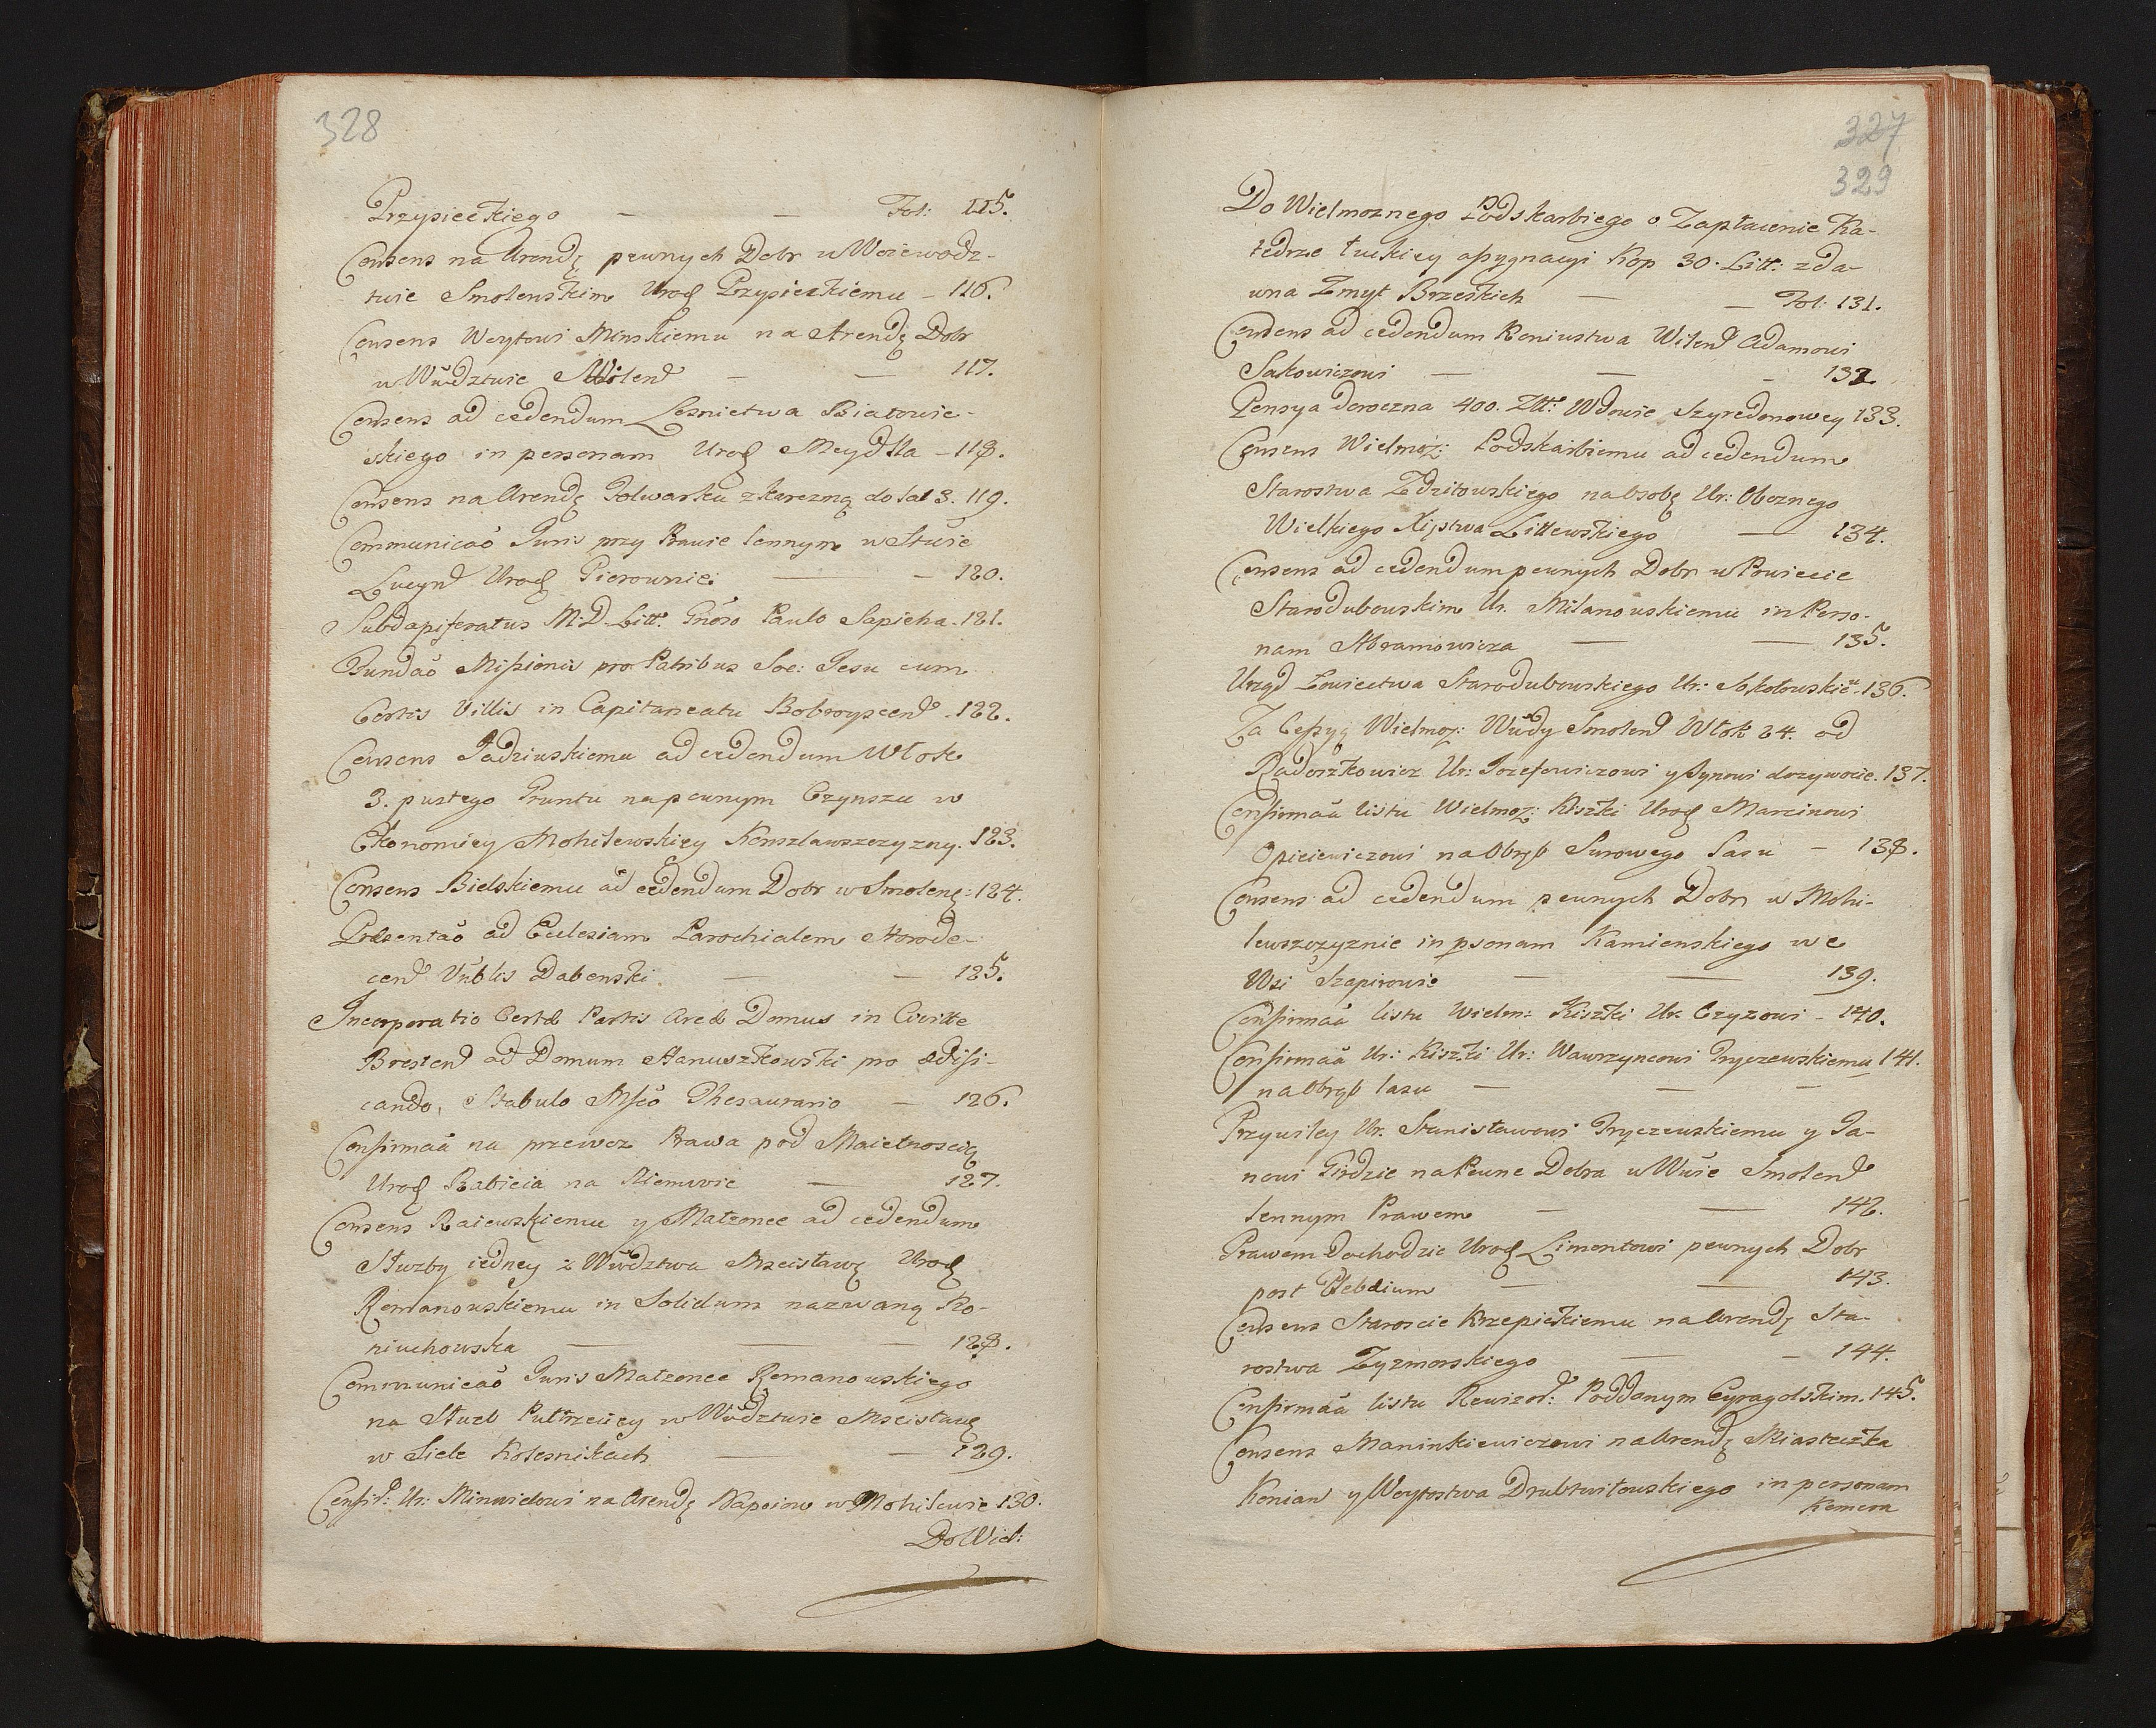 328
Przypieckiego — — Fol: 115.
Consens na Arendę pewnych Dobr w Woiewodz-
twie Smolenskim Urod Przypieckiemu – 116.
Consens Woytowi Minskiemu na Arendę Dobr
w Wwdztwie Smolend — — 117.
Consens ad cedendum Lesnictwa Białowie-
skiego in personam Urod Meydlla – 118.
Consens na Arendę Folwarku z karczmą do lat 3. 119.
Communicaõ Juris przy Prawie lennym w Stwie
Lucynd Urod Pierowniei — – 120.
Subdapiferatus M. D. Litt. Gnõso Paulo Sapieha. 121.
Fundaõ Missionis pro Patribus Soc: Jesu cum
Certis Villis in Capitaneatu Bobroyscend. 122.
Consens Jadziwskiemu ad cedendum Włok
3. pustego Gruntu na pewnym Czynszu w
Ekonomiey Mohilewskiey 123.
Consens Bielskiemu ad cedendum Dobr w Smolenę: 124.
Præsentaõ ad Ecclesiam Parochialem Horode-
cend Vñblis Dabenski — – 125.
Incorporatio Certæ Partis Areæ Domus in Civitte
Brestend ad Domum Hanuszkowski pro ædifi-
cando, Stabulo Msco Thesaurario – 126.
Confirmaã na przewoz Prawa pod Maietnoscią
Urod Rabieia na Niemwie — 127.
Consens Raiewskiemu y Małzonce ad cedendum
Słuzby iedney z Wwdztwa Mscisławę Urod
Romanowskiemu in Solidum nazwaną Ko-
niuchowska — — – 128.
Communicaõ Juris Małzonce Romanowskiego
na Słuzb Pułtrzeciey w Wwdztwie Mscisławę
w Siele Kolesnikach — – 129.
Consd: Ur: Minwidowi na Arendę Napoiow w Mohilewie 130.
Do Wiel:
327
329
Do Wielmoznego Podskarbiego o Zapłacenie Ka-
tedrze łuckiey assygnacyi Kop 30. Litt: z da-
wna Zmyt Brzeskich — – Fol: 131.
Consens ad cedendum Koniustwa Wilend Adamowi
Sakowiczowi — — – 132
Pensya doroczna 400. Złł: Wdowie Szyredonowey 133.
Consens Wielmoz: Podskarbiemu ad cedendum
Starostwa Zdzitowskiego na Osobę Ur: Oboznego
Wielkiego Xięstwa Littewskiego — 134.
Consens ad cedendum pewnych Dobr w Powiecie
Starodubowskim Ur. Milanowskiemu in Perso-
nam Abramowicza — — 135.
Urząd Łowiectwa Starodubowskiego Ur: Sokołowskieu. 136.
Za Cessyą Wielmoz: Wwdy Smolend Włok 24. od
Radoszkowicz Ur: Jozefowiczowi y Synowi dozywocie. 137.
Confirmaã listu Wielmoz: Kiszki Urod Marcinowi
Opieciewiczowi na Obrąb Surowego Lasu – 138.
Consens ad cedendum pewnych Dobr w Mohi-
lewszczyznie in psonam Kamienskiego we
Wsi Szapirowie — — 139.
Confirmaã listu Wielm: Kiszki Ur. Czyzowi – 140.
Confirmaã Ur: Kiszki Ur: Wawrzyncowi Pryczewskiemu 141.
na Obrąb lasu — — –
Przywiley Ur. Stanisławowi Pryczewskiemu y Ja-
nowi Girdzie na Pewne Dobra w Wwie Smolend
lennym Prawem — — 142.
Prawem dochodzic Urod Limontowi pewnych Dobr
post Plebeium — — 143.
Consens Staroscie Krzepickiemu na Arendę Sta-
rostwa Zyzmorskiego — – 144.
Confirmaã listu Rewizord: Poddanym Eyragolskim. 145.
Consens Maninkiewiczowi na Arendę Miasteczka
Konian y Woytostwa Drubtwitowskiego in personam
Komera